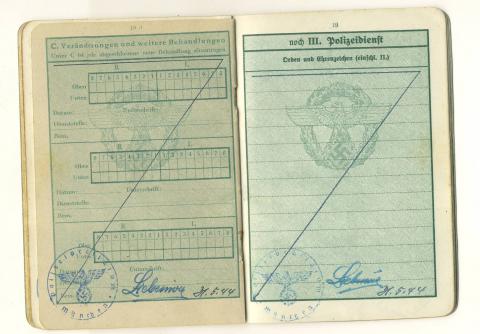 C. Veränderungen und weitere Behandlungen
Unter C ist jede abgeschlossene neue Behandlung einzutragen.
R. L.
Oben 8 7 6 5 4 3 2 1 1 2 3 4 5 6 7 8
Unten
Datum: Unterschrift:
Dienststelle:
Bem.
R. L.
Oben 8 7 6 5 4 3 2 1 1 2 3 4 5 6 7 8
Unten
Datum: Unterschrift:
Dienststelle:
Bem.
R. L.
Oben 8 7 6 5 4 3 2 1 1 2 3 4 5 6 7 8
Unten
Unterschrift:
München
5.44
19
noch III. Polizeidienst
Orden und Ehrenzeichen (einschl. II.)
München
5.44